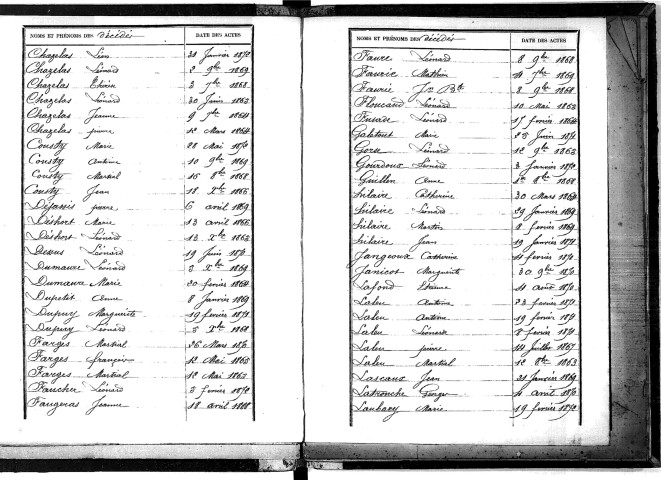 NOMS ET PRÉNOMS DES décédés DATE DES ACTES
Chazelas Léon 31 Janvier 1872
Chazelas Léonard 2 9bre 1869
Chazelas Etienne 3 7bre 1868
Chazelas Léonard 30 Juin 1863
Chazelas Jeanne 9 7bre 1864
Chazelas pierre 12 Mars 1864
Cousty Marie 28 Mai 1870
Cousty Antoine 10 9bre 1869
Cousty Martial 16 8bre 1868
Cousty Jean 18 Xbre 1865
Dejassis pierre 6 avril 1869
Déshort Marie 13 avril 1866
Déshort Léonard 13 Xbre 1863
Dessus Léonard 19 Juin 1870
Dumaure Léonard 3 Xbre 1869
Dumaure Marie 20 fevrier 1864
Dupetit Anne 8 Janvier 1869
Dupuy Marguerite 19 fevrier 1871
Dupuy Léonard 5 Xbre 1868
Farges Martial 26 Mars 1870
Farges françois 12 Mai 1863
Farges Martial 12 Mai 1863
Faucher Léonard 3 fevrier 1872
Faugeras Jeanne 18 avril 1868
NOMS ET PRÉNOMS DES décédés DATE DES ACTES
Faure Léonard 8 9bre 1868
Faurie Mathieu 4 7bre 1869
Faurie Jn Bte 8 9bre 1868
Floucaud Léonard 10 Mai 1863
Fusade Léonard 17 fevrier 1864
Galatout Marie 23 Juin 1871
Gorse Léonard 12 9bre 1863
Gourdoux Léonard 3 Janvier 1872
Guillen Anne 1er 8bre 1868
hilaire Catherine 30 Mars 1869
hilaire Léonard 29 Janvier 1869
hilaire Martin 8 fevrier 1869
hilaire Jean 19 Janvier 1871
Jangeoux Catherine 14 fevrier 1871
Janicot Marguerite 30 9bre 1870
Lafond Etienne 4 août 1870
Laleu Antoine 23 fevrier 1871
Laleu Antoine 19 fevrier 1871
Laleu Léonard 8 fevrier 1871
Laleu pierre 14 Juillet 1867
Laleu Martial 12 8bre 1863
Lascaux Jean 21 Janvier 1869
Latronche 4 avril 1870
Laubary Marie 19 fevrier 1872